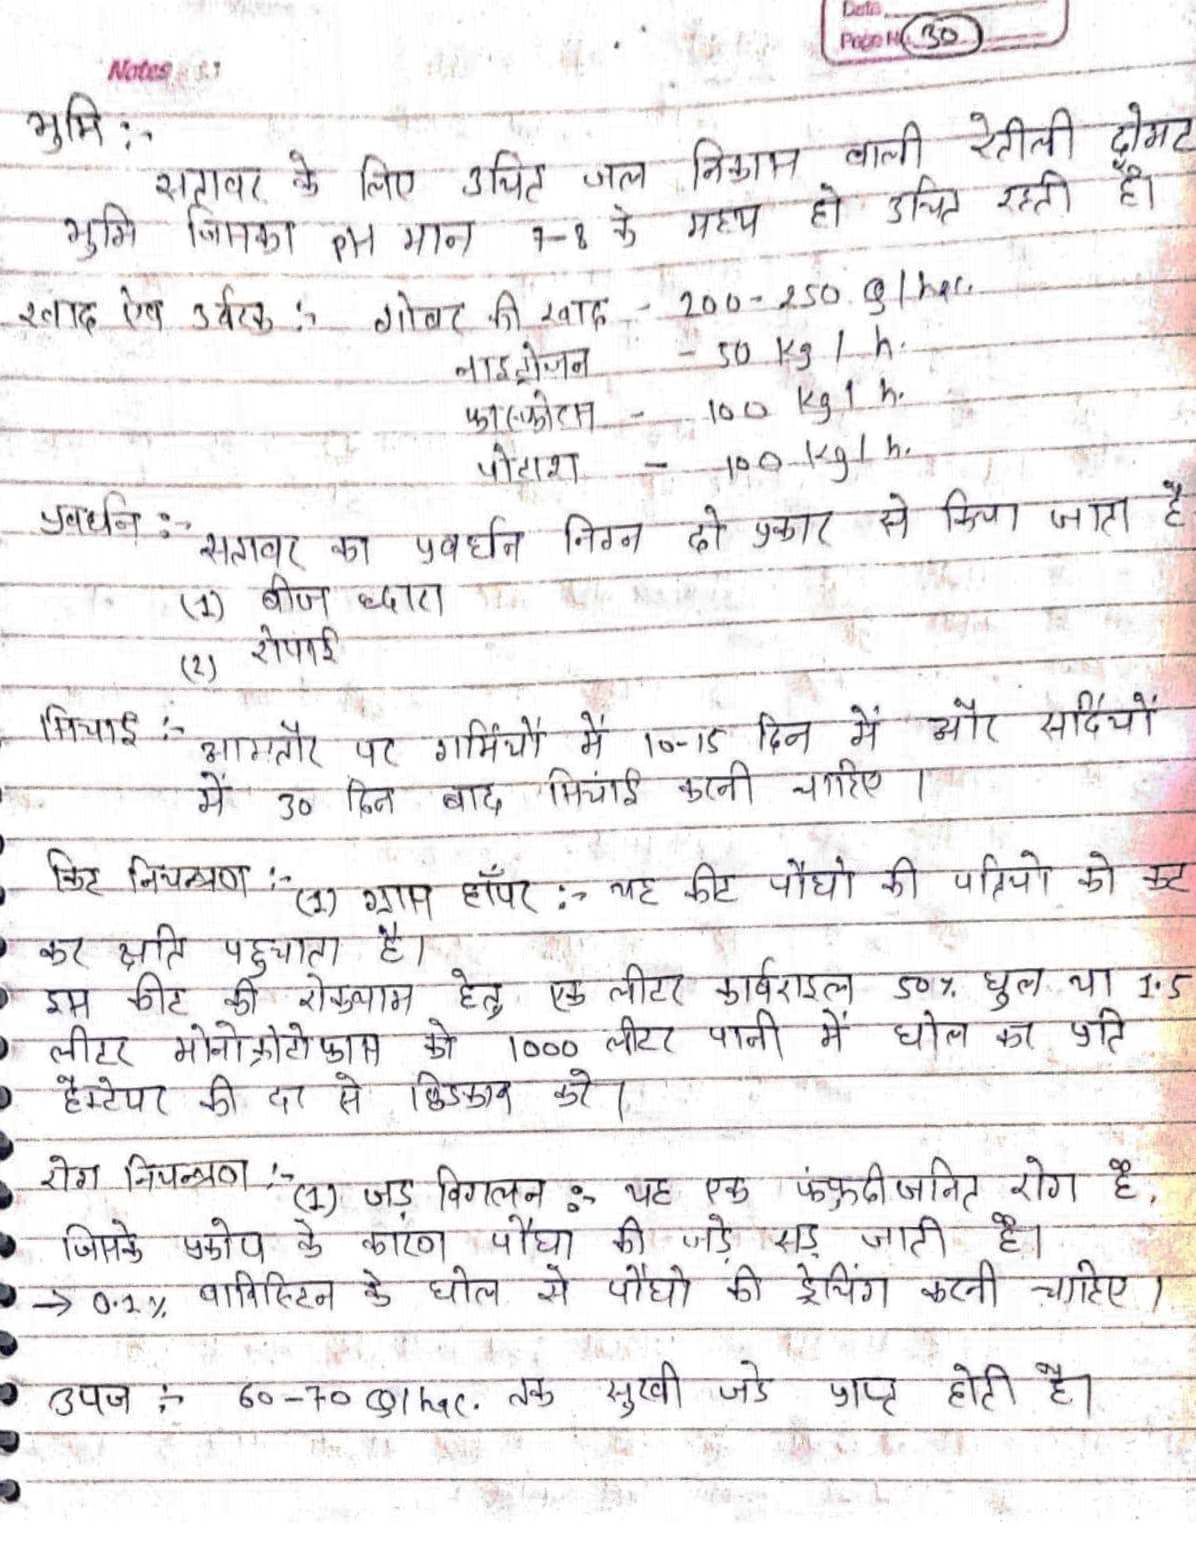 Date
Page No. 30
Notes
भुमि :-
सतावर के लिए उचित जल निकास वाली रेतीली दोमट
भुमि जिसका PH मान 7-8 के मध्य हो उचित रहती है।
खाद ऐव उर्वरक :- गोबर की खाद - 200-250 Q/hac.
नाइट्रोजन - 50 kg / h.
फास्फोरस - 100 kg / h.
पोटाश - 100 kg / h.
प्रवर्धन :- सतावर का प्रवर्धन निम्न दो प्रकार से किया जाता है
(1) बीज ध्दारा
(2) रोपाई
सिचाई :- आमतौर पर गर्मियों में 10-15 दिन में और सर्दियों
में 30 दिन बाद सिचांई करनी चाहिए ।
किट नियन्त्रण :- (1) ग्रास हॉपर :- यह कीट पौधो की पत्तियो को कट
कर क्षति पहुचाता है।
इस कीट की रोकथाम हेतु एक लीटर कार्बराइल 50% घुल या 1.5
लीटर मोनोक्रोटोफास को 1000 लीटर पानी में घोल कर प्रति
हैक्टेयर की दर से छिडकाव करे ।
रोग नियन्त्रण :- (1) जड़ विगलन :- यह एक फंफुदीजनित रोग है,
जिसके प्रकोप के कारण पौधा की जड़े सड़ जाती है।
→ 0.2% बाविस्टिन के घोल से पौधो की ड्रेचिंग करनी चाहिए ।
उपज :- 60-70 Q/hac. तक सुखी जडे प्राप्त होती है।